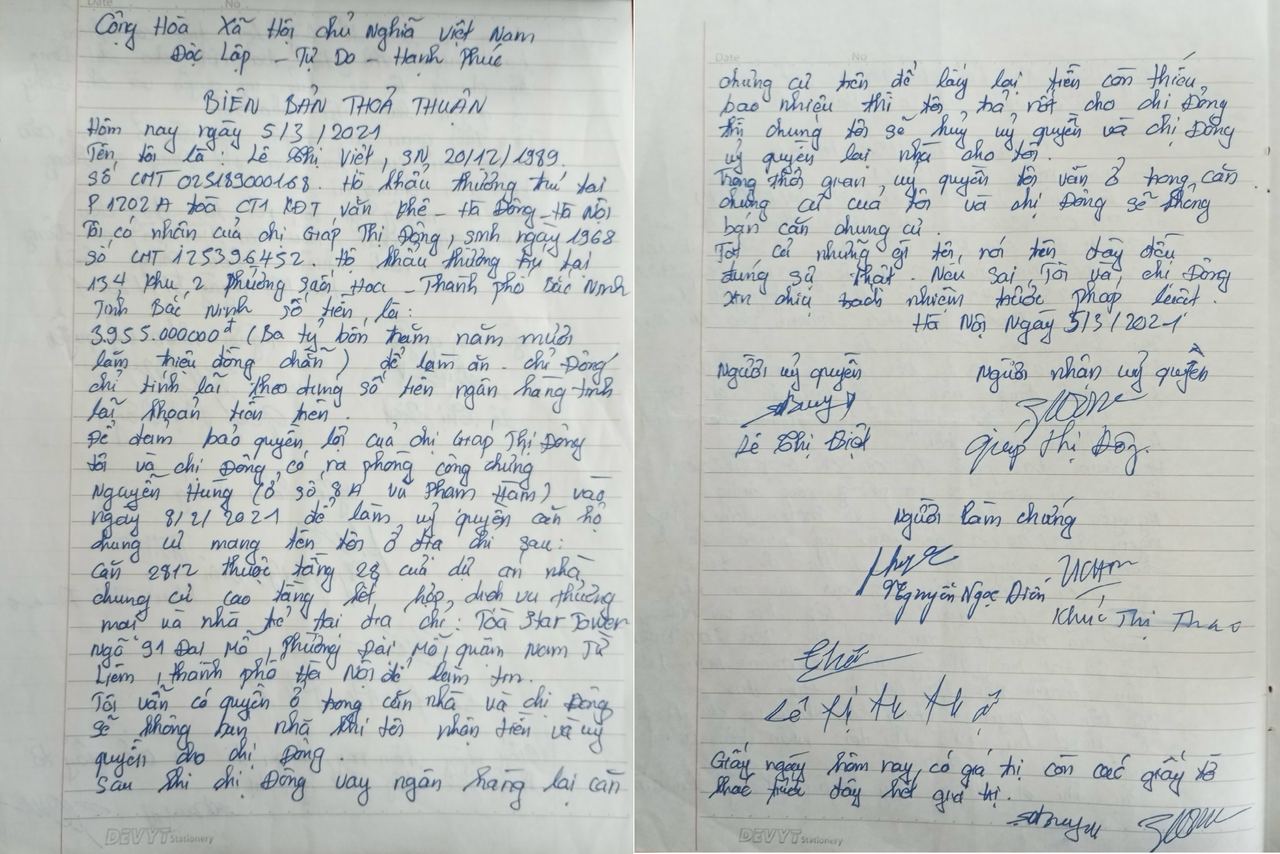 Date No
Cộng Hòa Xã Hội chủ Nghĩa Việt Nam
Độc Lập - Tự Do - Hạnh Phúc
BIÊN BẢN THOẢ THUẬN
Hôm nay ngày 5/3/2021
Tên tôi là: Lê Thị Việt, SN 20/12/1989.
Số CMT 025189000168. Hộ khẩu thường trú tại
P1202A toà CT1 KĐT Văn Khê - Hà Đông - Hà Nội
Tôi có nhận của chị Giáp Thị Đông, sinh ngày 1968
Số CMT 125396452. Hộ khẩu thường trú tại
134 khu 2 phường - Thành phố Bắc Ninh
Tỉnh Bắc Ninh số tiền là:
3.955.000000đ (Ba tỷ bốn trăm năm mươi
lăm triệu đồng chẵn) để làm ăn. chị Đông
chỉ tính lãi theo đúng số tiền ngân hàng tính
lãi khoản tiền trên.
Để đảm bảo quyền lợi của chị Giáp Thị Đông
tôi và chị Đông có ra phòng công chứng
Nguyễn Hùng (ở số 8A vũ Phạm Hàm) vào
ngày 8/2/2021 để làm uỷ quyền căn hộ
chung cư mang tên tôi ở địa chỉ sau:
Căn 2812 thuộc tầng 28 của dự án nhà
chung cư cao tầng kết hợp, dịch vụ thương
mại và nhà trẻ tại địa chỉ: Toà Star Tower
ngõ 91 Đại Mỗ, phường Đại Mỗ, quận Nam Từ
Liêm, thành phố Hà Nội để làm tin.
Tôi vẫn có quyền ở trong căn nhà và chị Đông
sẽ không bán nhà khi tôi nhận tiền và uỷ
quyền cho chị Đông.
Sau khi chị Đông vay ngân hàng lại căn
DEVYT Stationery
Date No
chung cư trên để lấy lại tiền còn thiếu
bao nhiêu thì tôi trả nốt cho chị Đông
thì chúng tôi sẽ huỷ uỷ quyền và chị Đông
uỷ quyền lại nhà cho tôi.
Trong thời gian uỷ quyền tôi vẫn ở trong căn
chung cư của tôi và chị Đông sẽ không
bán căn chung cư.
Tất cả những gì tôi nói trên đây đều
đúng sự thật. Nếu sai Tôi và chị Đông
xin chịu trách nhiệm trước pháp luật.
Hà Nội Ngày 5/3/2021
Người uỷ quyền Người nhận uỷ quyền
Lê Thị Việt Giáp Thị Đông.
Người làm chứng
Nguyễn Ngọc Khúc Thị Thao
Lê Thị
Giấy ngày hôm nay có giá trị còn các giấy tờ
khác trước đây hết giá trị.
DEVYT Stationery